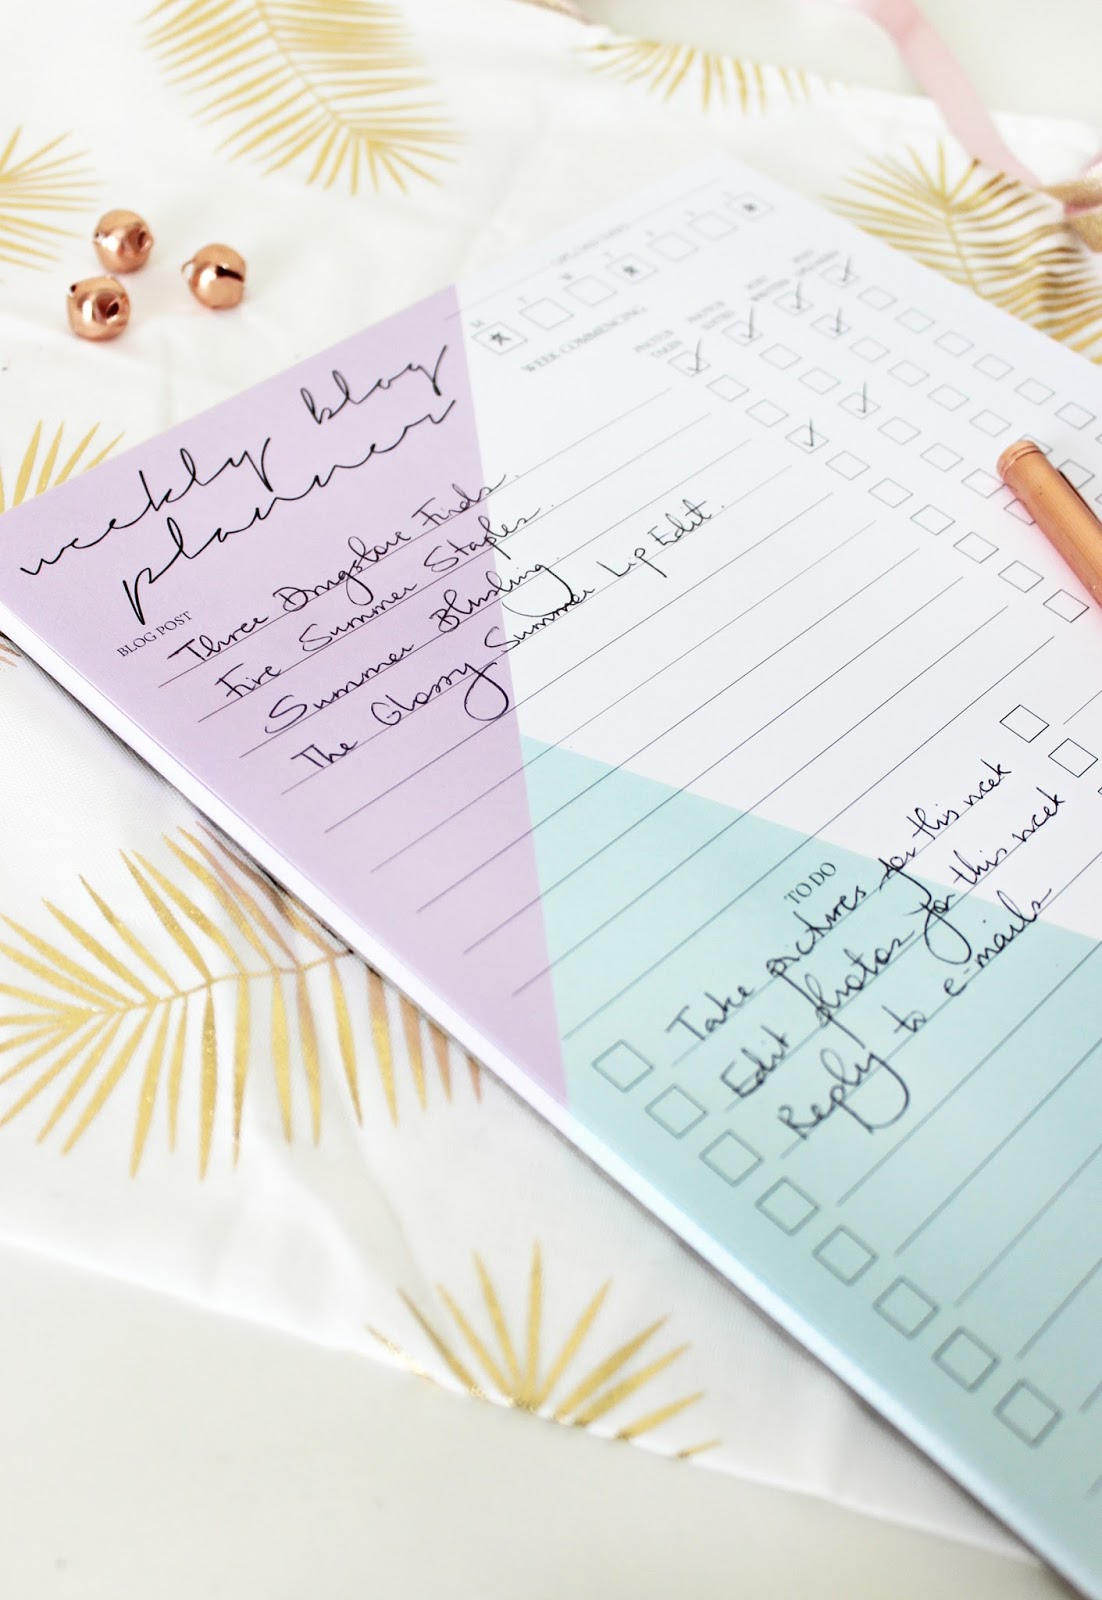 weekly blog
planner
M T W T F S S
WEEK COMMENCING
PHOTOS TAKEN
PHOTOS EDITED
BLOG POST
Three Drugstore Finds.
Five Summer Staples.
Summer Blushing
The Glossy Summer Lip Edit.
TO DO
Take pictures for this week
Edit photos for this week
Reply to e-mails